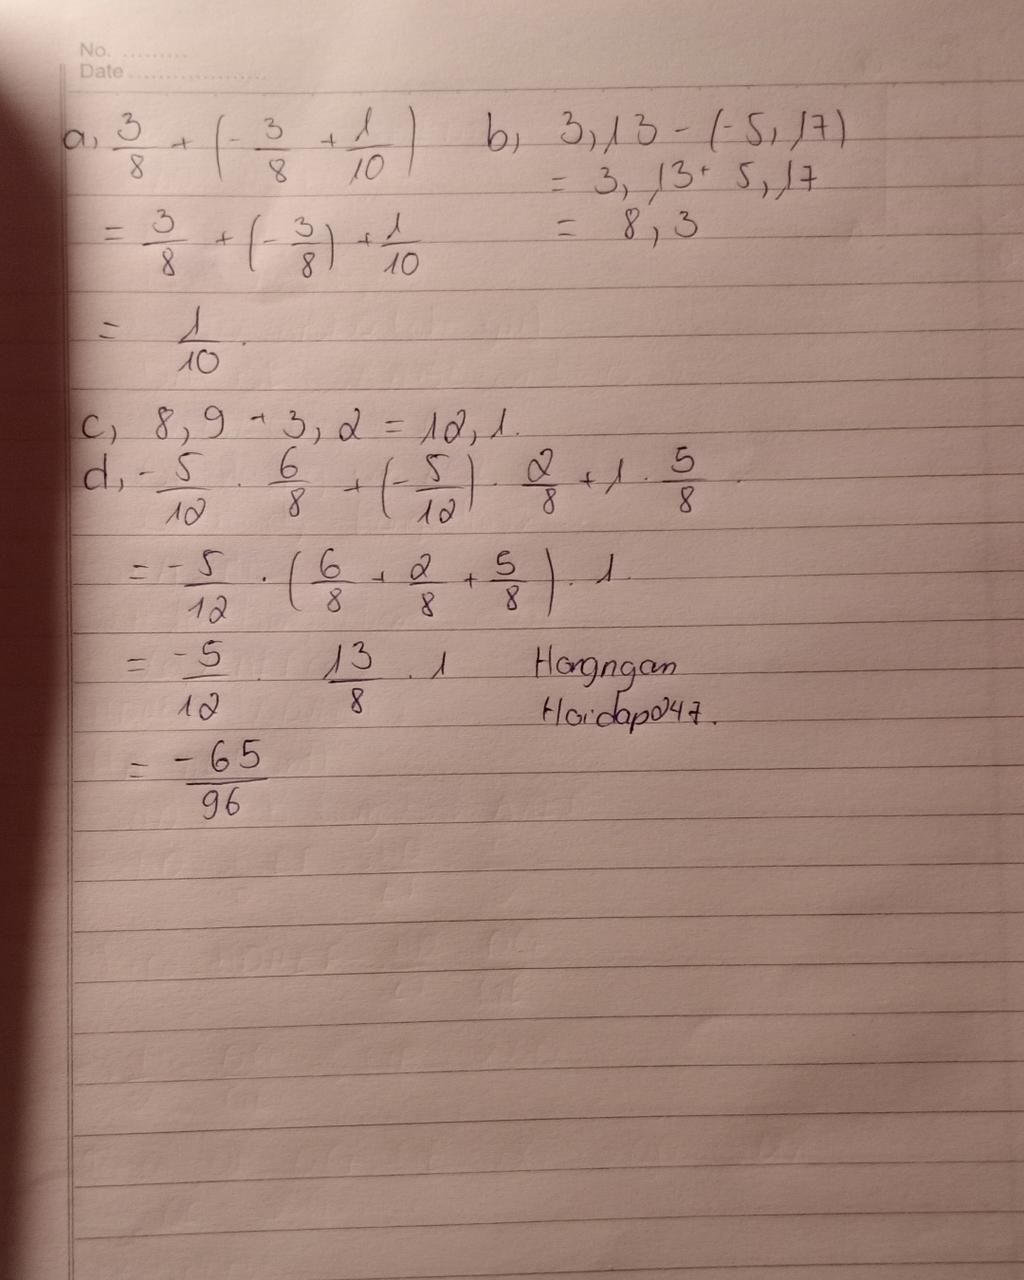 No. .........
Date ...................
a, 3/8 + (-3/8 + 1/10)
= 3/8 + (-3/8) + 1/10
= 1/10.
b, 3,13 - (-5,17)
= 3,13 + 5,17
= 8,3
c, 8,9 + 3,2 = 12,1.
d, -5/12 . 6/8 + (-5/12) . 2/8 + 1 . 5/8
= -5/12 . (6/8 + 2/8 + 5/8) . 1
= -5/12 . 13/8 . 1
= -65/96
Hangngan
Hoidap247.